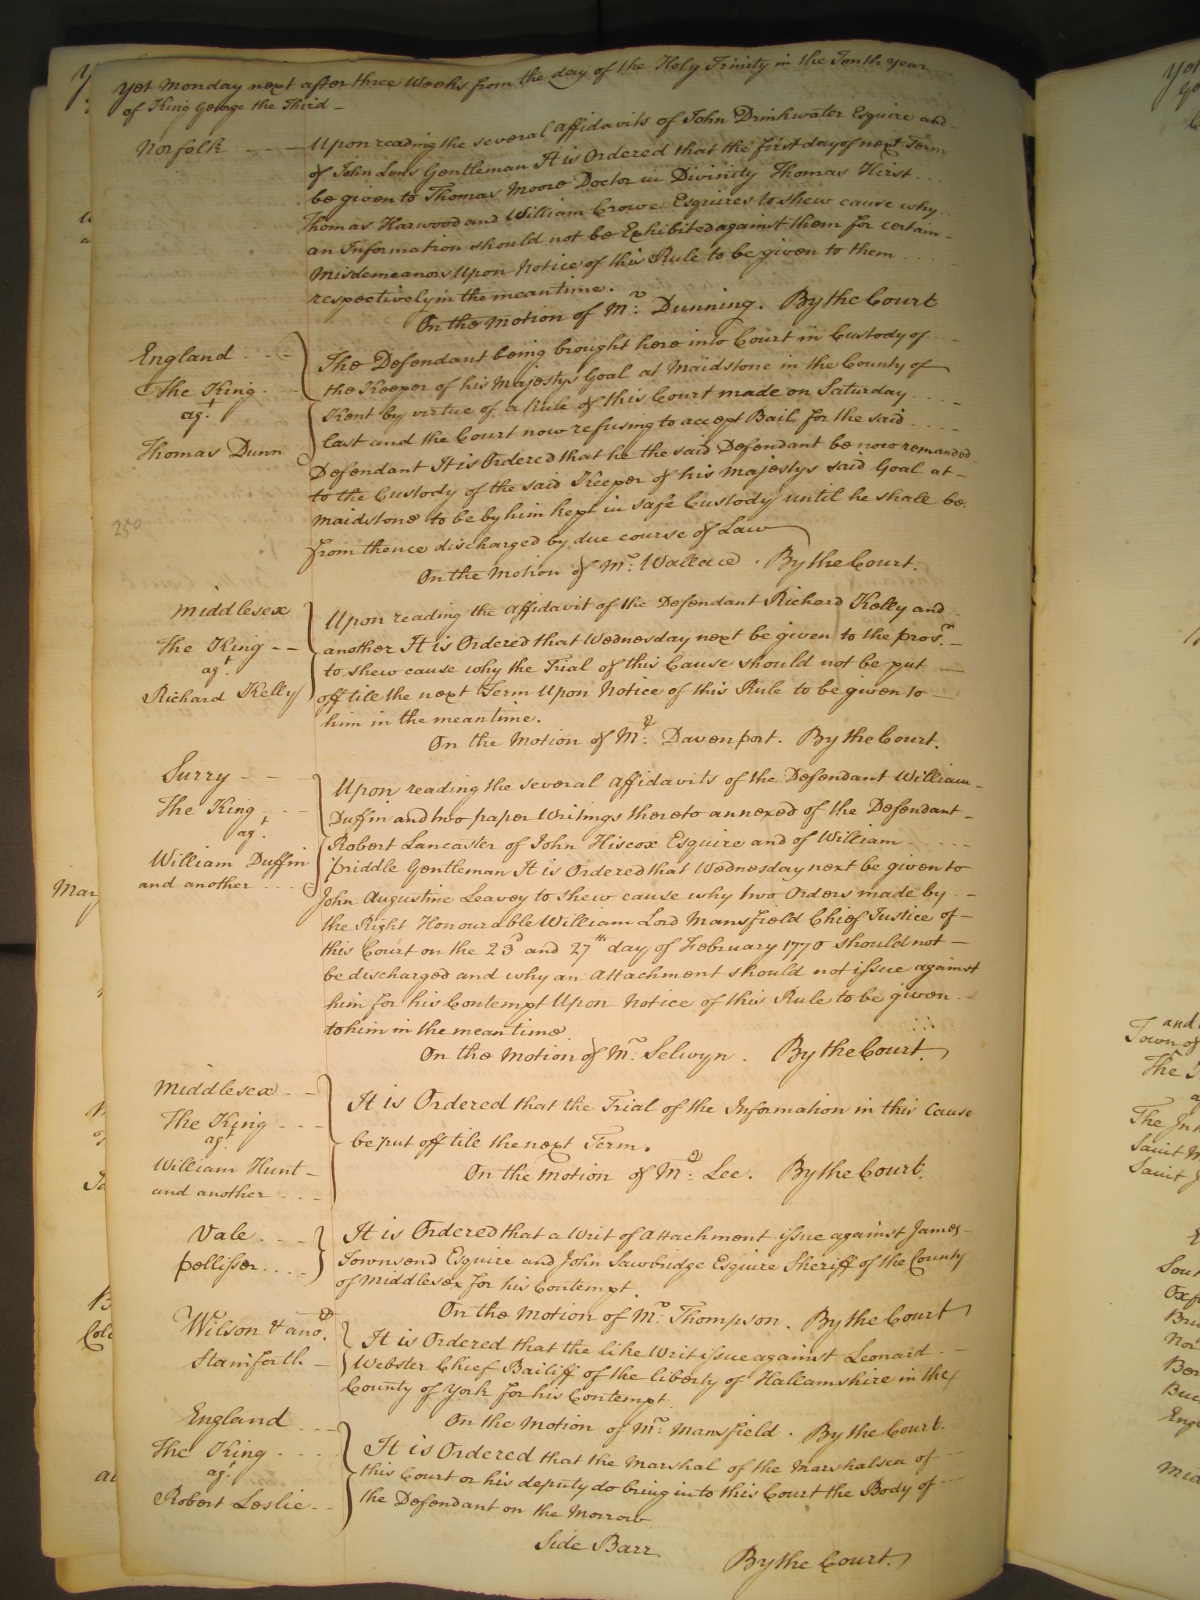 Yet Monday next after three Weeks from the day of the Holy Trinity in the Tenth Year
of King George the Third -
Norfolk
Upon reading the several Affidavits of John Drinkwater Esquire and
of John Lens Gentleman It is Ordered that the first day of next Term
be given to Thomas Moore Doctor in Divinity Thomas Hirst
Thomas Harwood and William Crowe Esquires to shew cause why
an Information should not be Exhibited against them for certain
Misdemeanors Upon Notice of this Rule to be given to them
respectively in the mean time.
On the Motion of Mr: Dunning. By the Court
England
The King
agt
Thomas Dunn
The Defendant being brought here into Court in Custody of
the Keeper of his Majestys Goal at Maidstone in the County of
Kent by virtue of a Rule of this Court made on Saturday
last and the Court now refusing to accept Bail for the said
Defendant It is Ordered that he the said Defendant be now remanded
to the Custody of the said Keeper of his Majestys said Goal at
Maidstone to be by him kept in safe Custody until he shall be
from thence discharged by due course of Law
On the Motion of Mr: Wallace. By the Court.
250
Middlesex
The King
agt.
Richard Kelly
Upon reading the Affidavit of the Defendant Richard Kelly and
another It is Ordered that Wednesday next be given to the prosr.
to shew cause why the Trial of this Cause should not be put
off till the next Term Upon Notice of this Rule to be given to
him in the mean time.
On the Motion of Mr: Davenport. By the Court.
Surry
The King
agt.
William Duffin
and another
Upon reading the several Affidavits of the Defendant William
Duffin and two paper Writings thereto annexed of the Defendant
Robert Lancaster of John Hiscox Esquire and of William
priddle Gentleman It is Ordered that Wednesday next be given to
John Augustine Leavey to shew cause why two Orders made by
the Right Honourable William Lord Mansfield Chief Justice of
this Court on the 23d and 27th day of February 1770 should not
be discharged and why an Attachment should not issue against
him for his Contempt Upon Notice of this Rule to be given
to him in the mean time
On the Motion of Mr: Selwyn. By the Court.
Middlesex
The King
agt
William Hunt
and another
It is Ordered that the Trial of the Information in this Cause
be put off till the next Term.
On the Motion of Mr: Lee. By the Court.
Vale
pellisser
It is Ordered that a Writ of Attachment issue against James
Townsend Esquire and John Sawbridge Esquire Sheriff of the County
of Middlesex for his Contempt.
On the Motion of Mr: Thompson. By the Court
Wilson & anor.
Staniforth
It is Ordered that the like Writ issue against Leonard
Webster Chief Bailiff of the liberty of Hallamshire in the
County of York for his Contempt
On the Motion of Mr: Mansfield. By the Court.
England
The King
agt.
Robert Leslie
It is Ordered that the Marshal of the Marshalsea of
this Court or his deputy do bring into this Court the Body of
the Defendant on the Morrow
Side Barr
By the Court.